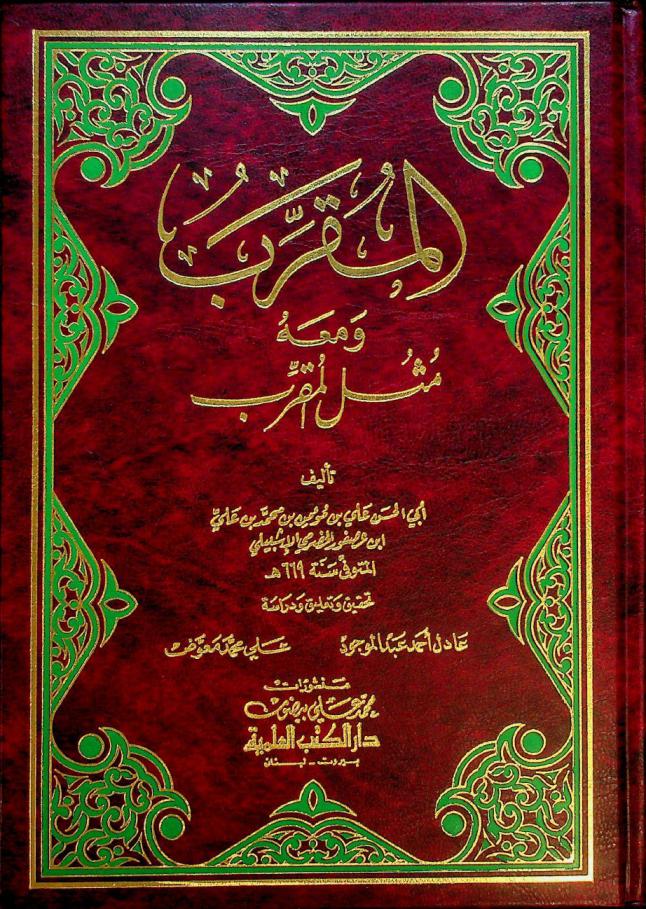 المُقَرَّبُ
وَمَعَهُ
مُثُلُ المُقَرَّب
تأليف
أبي الحسن علي بن مؤمن بن محمد بن علي
ابن عصفور الحضرمي الإشبيلي
المتوفى سَنَة ٦٦٩ هـ
تحقيق وَتعليق وَدراسة
عادل أحمد عبد الموجود علي محمد معوّض
منشورات
محمد علي بيضون
دار الكتب العلمية
بيروت - لبنان